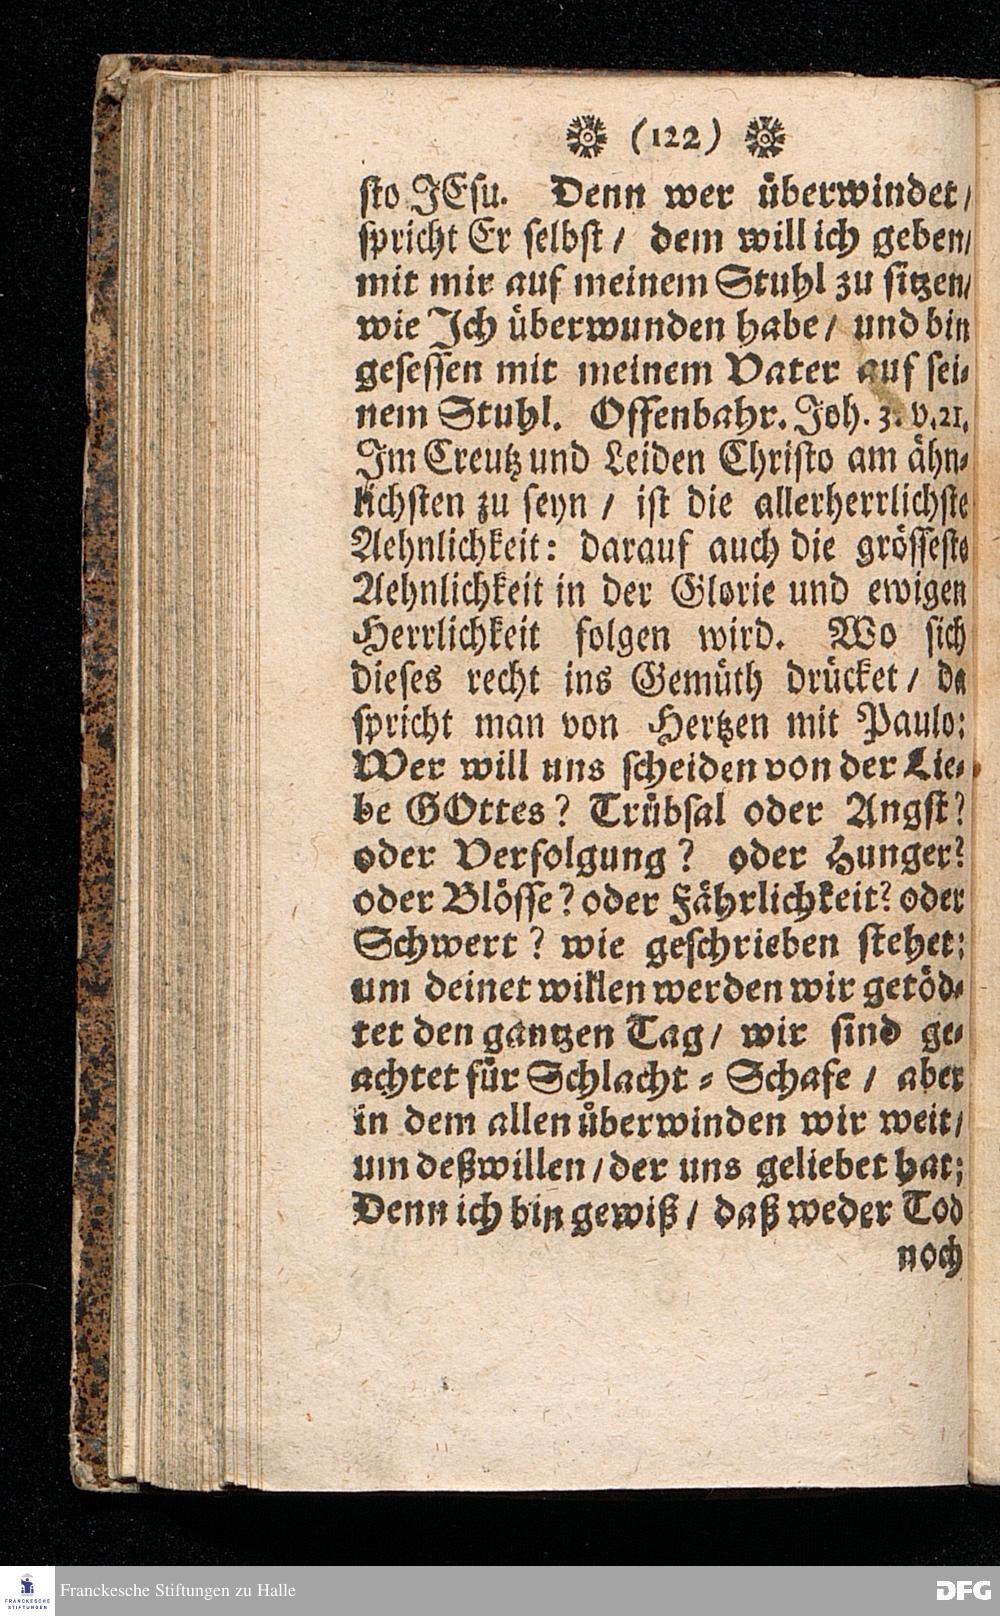 (122)
sto JEsu. Denn wer überwindet/
spricht Er selbst/ dem will ich geben/
mit mir auf meinem Stuhl zu sitzen/
wie Jch überwunden habe/ und bin
gesessen mit meinem Vater auf sei-
nem Stuhl. Offenbahr. Joh. 3. v. 21.
Jm Creutz und Leiden Christo am ähn-
lichsten zu seyn / ist die allerherrlichste
Aehnlichkeit: darauf auch die grösseste
Aehnlichkeit in der Glorie und ewigen
Herrlichkeit folgen wird. Wo sich
dieses recht ins Gemüth drücket / da
spricht man von Hertzen mit Paulo:
Wer will uns scheiden von der Lie-
be GOttes? Trübsal oder Angst?
oder Verfolgung? oder Hunger?
oder Blösse? oder Fährlichkeit? oder
Schwert? wie geschrieben stehet:
um deinet willen werden wir getöd-
tet den gantzen Tag/ wir sind ge-
achtet für Schlacht-Schafe / aber
in dem allen überwinden wir weit/
um deßwillen/ der uns geliebet hat;
Denn ich bin gewiß/ daß weder Tod
noch
Franckesche Stiftungen zu Halle
FRANCKESCHE
STIFTUNGEN
DFG